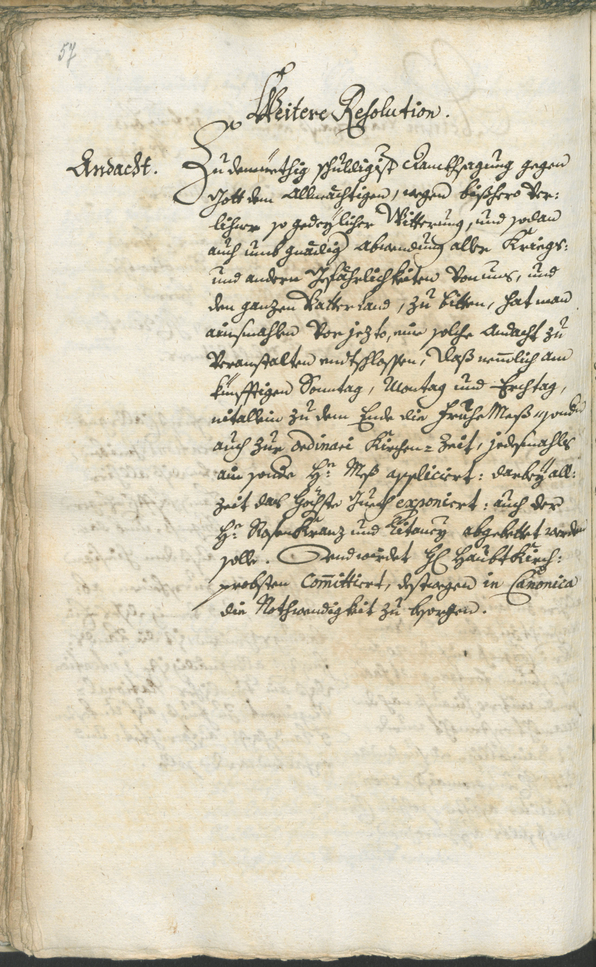 57
Weitere Resolution.
Andacht.
Zu demüethig schuldigist Dankhsagung gegen
Gott dem Allmächtigen, wegen bißhero ver-
lihner so gedeylicher Witterung, und sodan
auch umb gnädig Abwendung aller Kriegs-
und andern Gefährlichkeiten von uns, und
den ganzen Vatterland, zu bitten, hat man
ainsmahlen von jezto, eine solche Andacht zu
veranstalten entschlossen, daß nemblich am
künfftigen Sonntag, Montag und Erchtag,
nit allein zu dem Ende die Frühe Meß, sondern
auch zur ordinari Kirchen-Zeit, jedesmahls
ain H: Meß appliciert: darbey all-
zeit das Höchste Guett exponiert: auch der
H: Rosenkranz und Litaney abgebettet werden
solle. Und würdet H: Haubt Kirch-
probsten Committiert, destwegen in Canonica
die Nothwendigkeit zu besorgen.